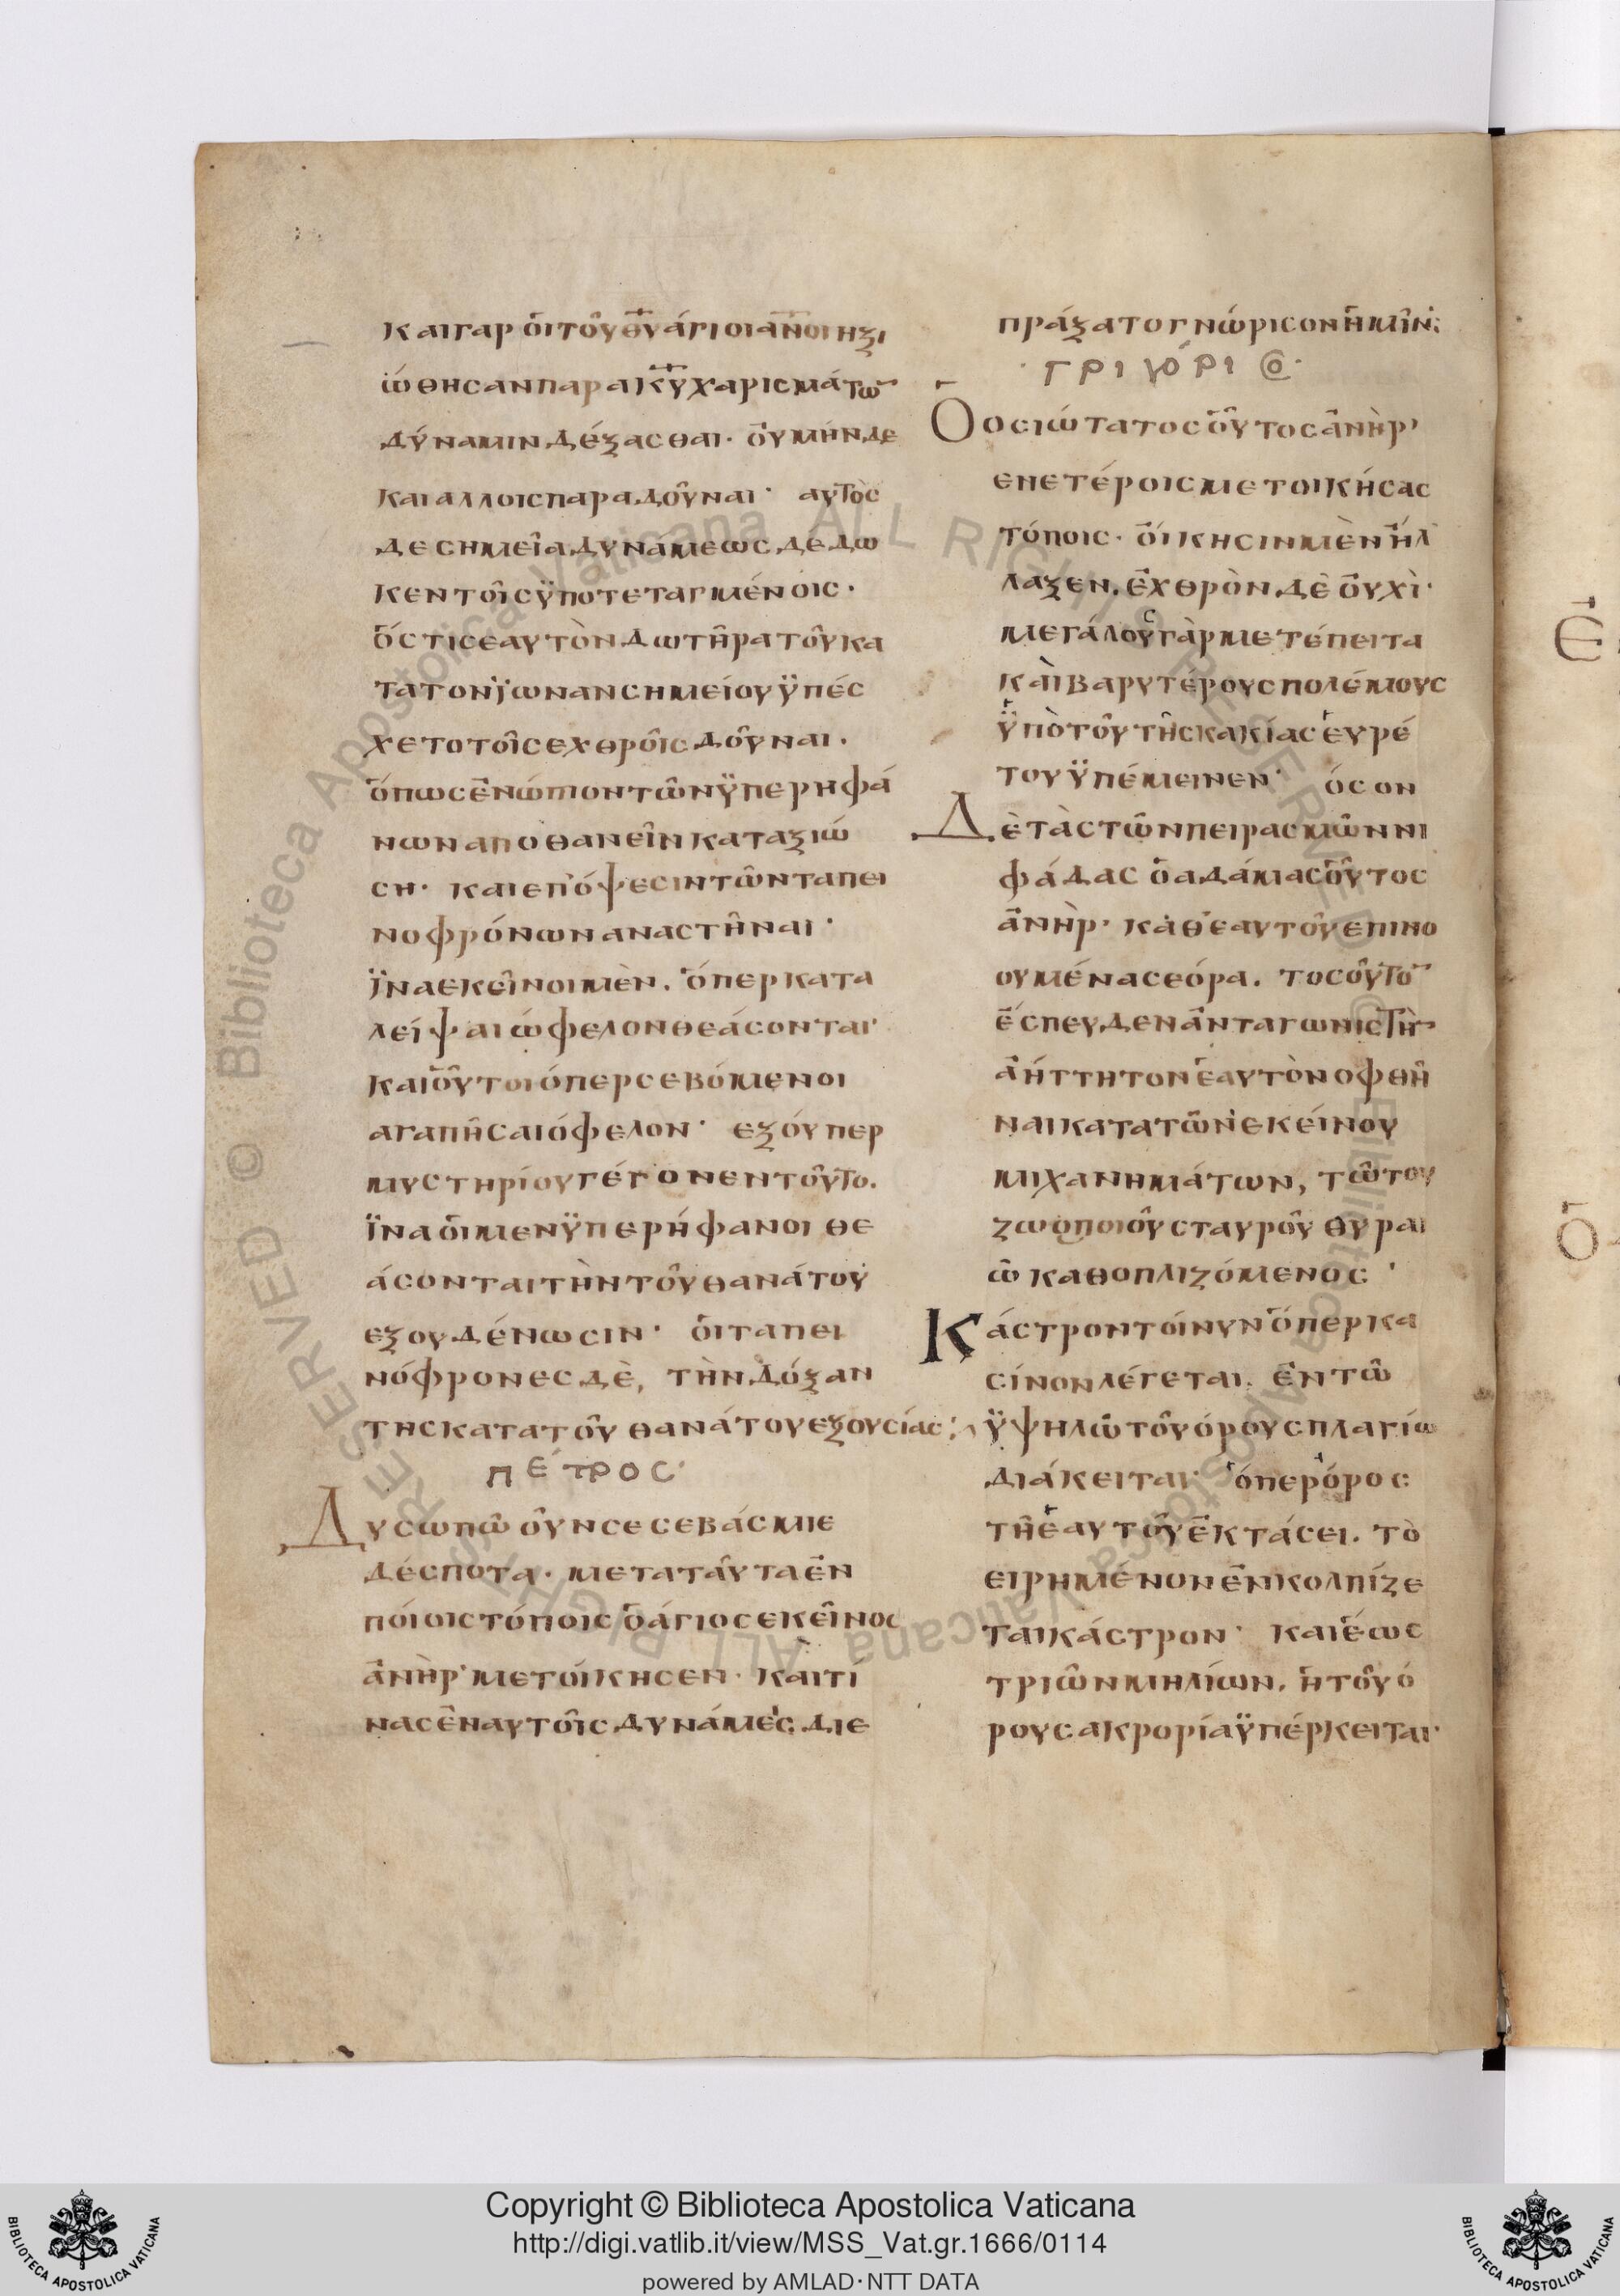 καιγαρ ὁιτοῦ θ̅υ̅ ἁγιοι α̅ν̅οι ηξι
ώθησαν παρα κ̅υ̅ χαρισμάτω̅
δύναμιν δέξασθαι· ὀυ μήν δε
και αλλοις παραδοῦναι· αυτὸς
δε σημεῖα δυνάμεως δεδω
κεν τοῖς ϋποτεταγμένοις·
ὅστις εαυτὸν δωτῆρα τοῦ κα
τα τον ϊωναν σημείου ϋπές
χετο τοῖς εχθροῖς δοῦναι.
ὅπως ἐνώπιον τῶν ϋπερηφά
νων αποθανεῖν καταξιώ
ση· και επ' όψεσιν τῶν ταπει
νοφρόνων αναστῆναι·
ϊνα εκεῖνοι μὲν. ὅπερ κατα
λείψαι ώφελον θεάσονται·
και οὗτοι όπερ σεβόμενοι
αγαπῆσαι όφελον· εξ όυπερ
μυστηρίου γέγονεν τοῦτο.
ϊνα ὁι μεν ϋπερήφανοι θε
άσονται τὴν τοῦ θανάτου
εξουδένωσιν· ὁι ταπει
νόφρονες δὲ, τὴν δόξαν
της κατα τοῦ θανάτου εξουσίας:
πέτρος·
Δυσωπῶ οῦν σε σεβάσμιε
δέσποτα· μετα ταῦτα ἐν
ποίοις τόποις ὁ άγιος εκεῖνος
ἀνὴρ μετοίκησεν· καὶ τί
νας ἐν αυτοῖς δυνάμεις διε
πράξατο γνώρισον ἡμῖν:
·γριγόρι@·
Ὁ οσιώτατος οὗτος ἀνὴρ,
εν ετέροις μετοικήσας
τόποις· ὀίκησιν μὲν ἤλ
λαξεν. ἐχθρὸν δὲ ὀυχὶ·
μεγάλους γὰρ μετέπειτα
καὶ βαρυτέρους πολέμους
ϋπὸ τοῦ τῆς κακίας ἑυρέ
του ϋπέμεινεν· όσον
Δὲ τὰς τῶν πειρασμῶν νι
φάδας ὁ αδάμας οὗτος
ἀνὴρ· καθ' εαυτοῦ επινο
ουμένας εόρα. τοσοῦτο̅
ἔσπευδεν ἀνταγωνιστὴ̅
ἀήττητον ἑαυτὸν οφθῆ
ναι κατα τῶν εκείνου
μιχανημάτων, τῶ του
ζωοποιοῦ σταυροῦ θυραι
ῶ καθοπλιζόμενος·
Κάστρον τοίνυν ὅπερ κα
σίνον λέγεται. ἐν τῶ
ϋψηλῶ τοῦ όρους πλαγίω
διάκειται· ὅπερ όρος
τῆ ἑαυτοῦ ἐκτάσει. τὸ
ειρημένον ἐνκολπίζε
ται κάστρον· και ἕως
τριῶν μηλίων. ἡ τοῦ ό
ρους ακρορία ϋπέρκειται·
Copyright © Biblioteca Apostolica Vaticana
http://digi.vatlib.it/view/MSS_Vat.gr.1666/0114
powered by AMLAD·NTT DATA